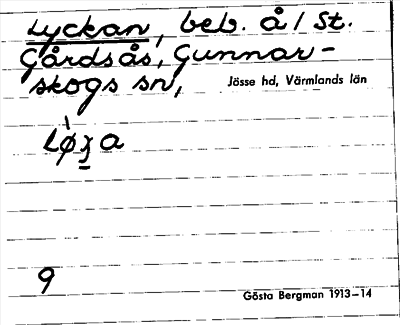 Lyckan, beb. å / St.
Gårdsås, Gunnar-
skogs sn,
Jösse hd, Värmlands län
9
Gösta Bergman 1913–14